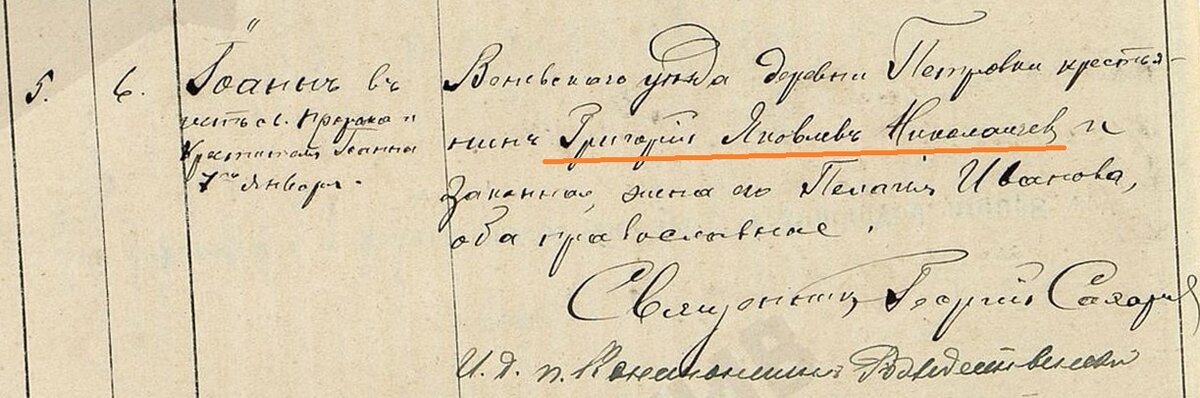 5.
6.
Іоаннъ въ
честь с. Пророка и
Крестителя Іоанна
7го Января.
Веневскаго уѣзда деревни Петровки крестья-
нинъ Григорій Яковлевъ Николаичев и
законная жена его Пелагія Иванова,
оба православные.
Священникъ Георгій
И. д. п.